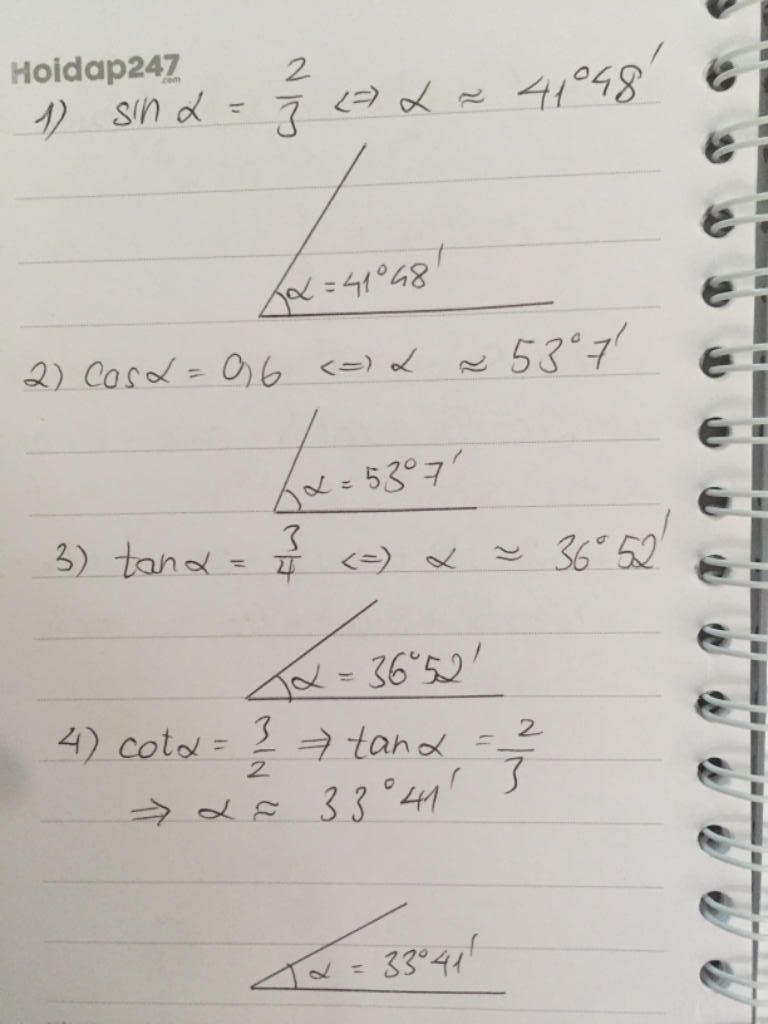 Hoidap247
.com
1) sin α = 2/3 <=> α ≈ 41°48'
α = 41°48'
2) cosα = 0,6 <=> α ≈ 53°7'
α = 53°7'
3) tanα = 3/4 <=> α ≈ 36°52'
α = 36°52'
4) cotα = 3/2 => tanα = 2/3
=> α ≈ 33°41'
α = 33°41'